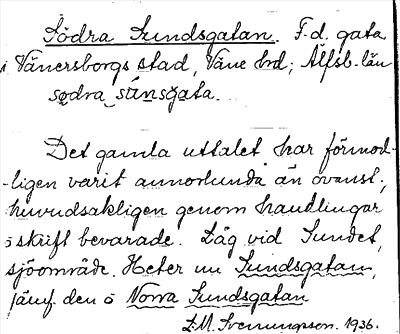 Södra Sundsgatan. F.d. gata
i Vänersborgs stad, Väne hrd; Älfsb. län
södra sùnsgata.
Det gamla uttalet har förmod-
-ligen varit annorlunda än ovanst.,
huvudsakligen genom handlingar
i skrift bevarade. Låg vid Sundet,
sjöområde. Heter nu Sundsgatan,
jämf. den å Norra Sundsgatan
L.M. Svenungson. 1936.